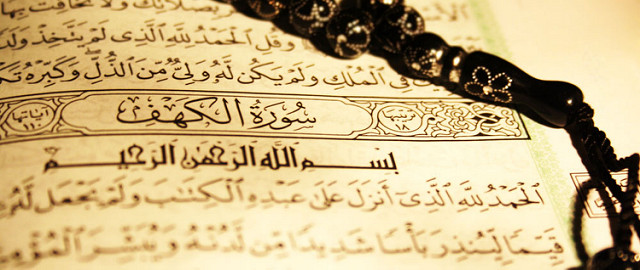 بِصَلَاتِكَ وَلَا تُخَافِتْ بِهَا
وَقُلِ ٱلْحَمْدُ لِلَّهِ ٱلَّذِى لَمْ يَتَّخِذْ وَلَدًا
فِى ٱلْمُلْكِ وَلَمْ يَكُن لَّهُۥ وَلِىٌّ مِّنَ ٱلذُّلِّ وَكَبِّرْهُ
ترتيبها ١٨ سُورَةُ الكَهْفِ آياتها ١١٠
بِسْمِ ٱللَّهِ ٱلرَّحْمَٰنِ ٱلرَّحِيمِ
ٱلْحَمْدُ لِلَّهِ ٱلَّذِىٓ أَنزَلَ عَلَىٰ عَبْدِهِ ٱلْكِتَٰبَ وَلَمْ يَجْعَل لَّهُۥ
قَيِّمًا لِّيُنذِرَ بَأْسًا شَدِيدًا مِّن لَّدُنْهُ وَيُبَشِّرَ ٱلْمُؤْمِ